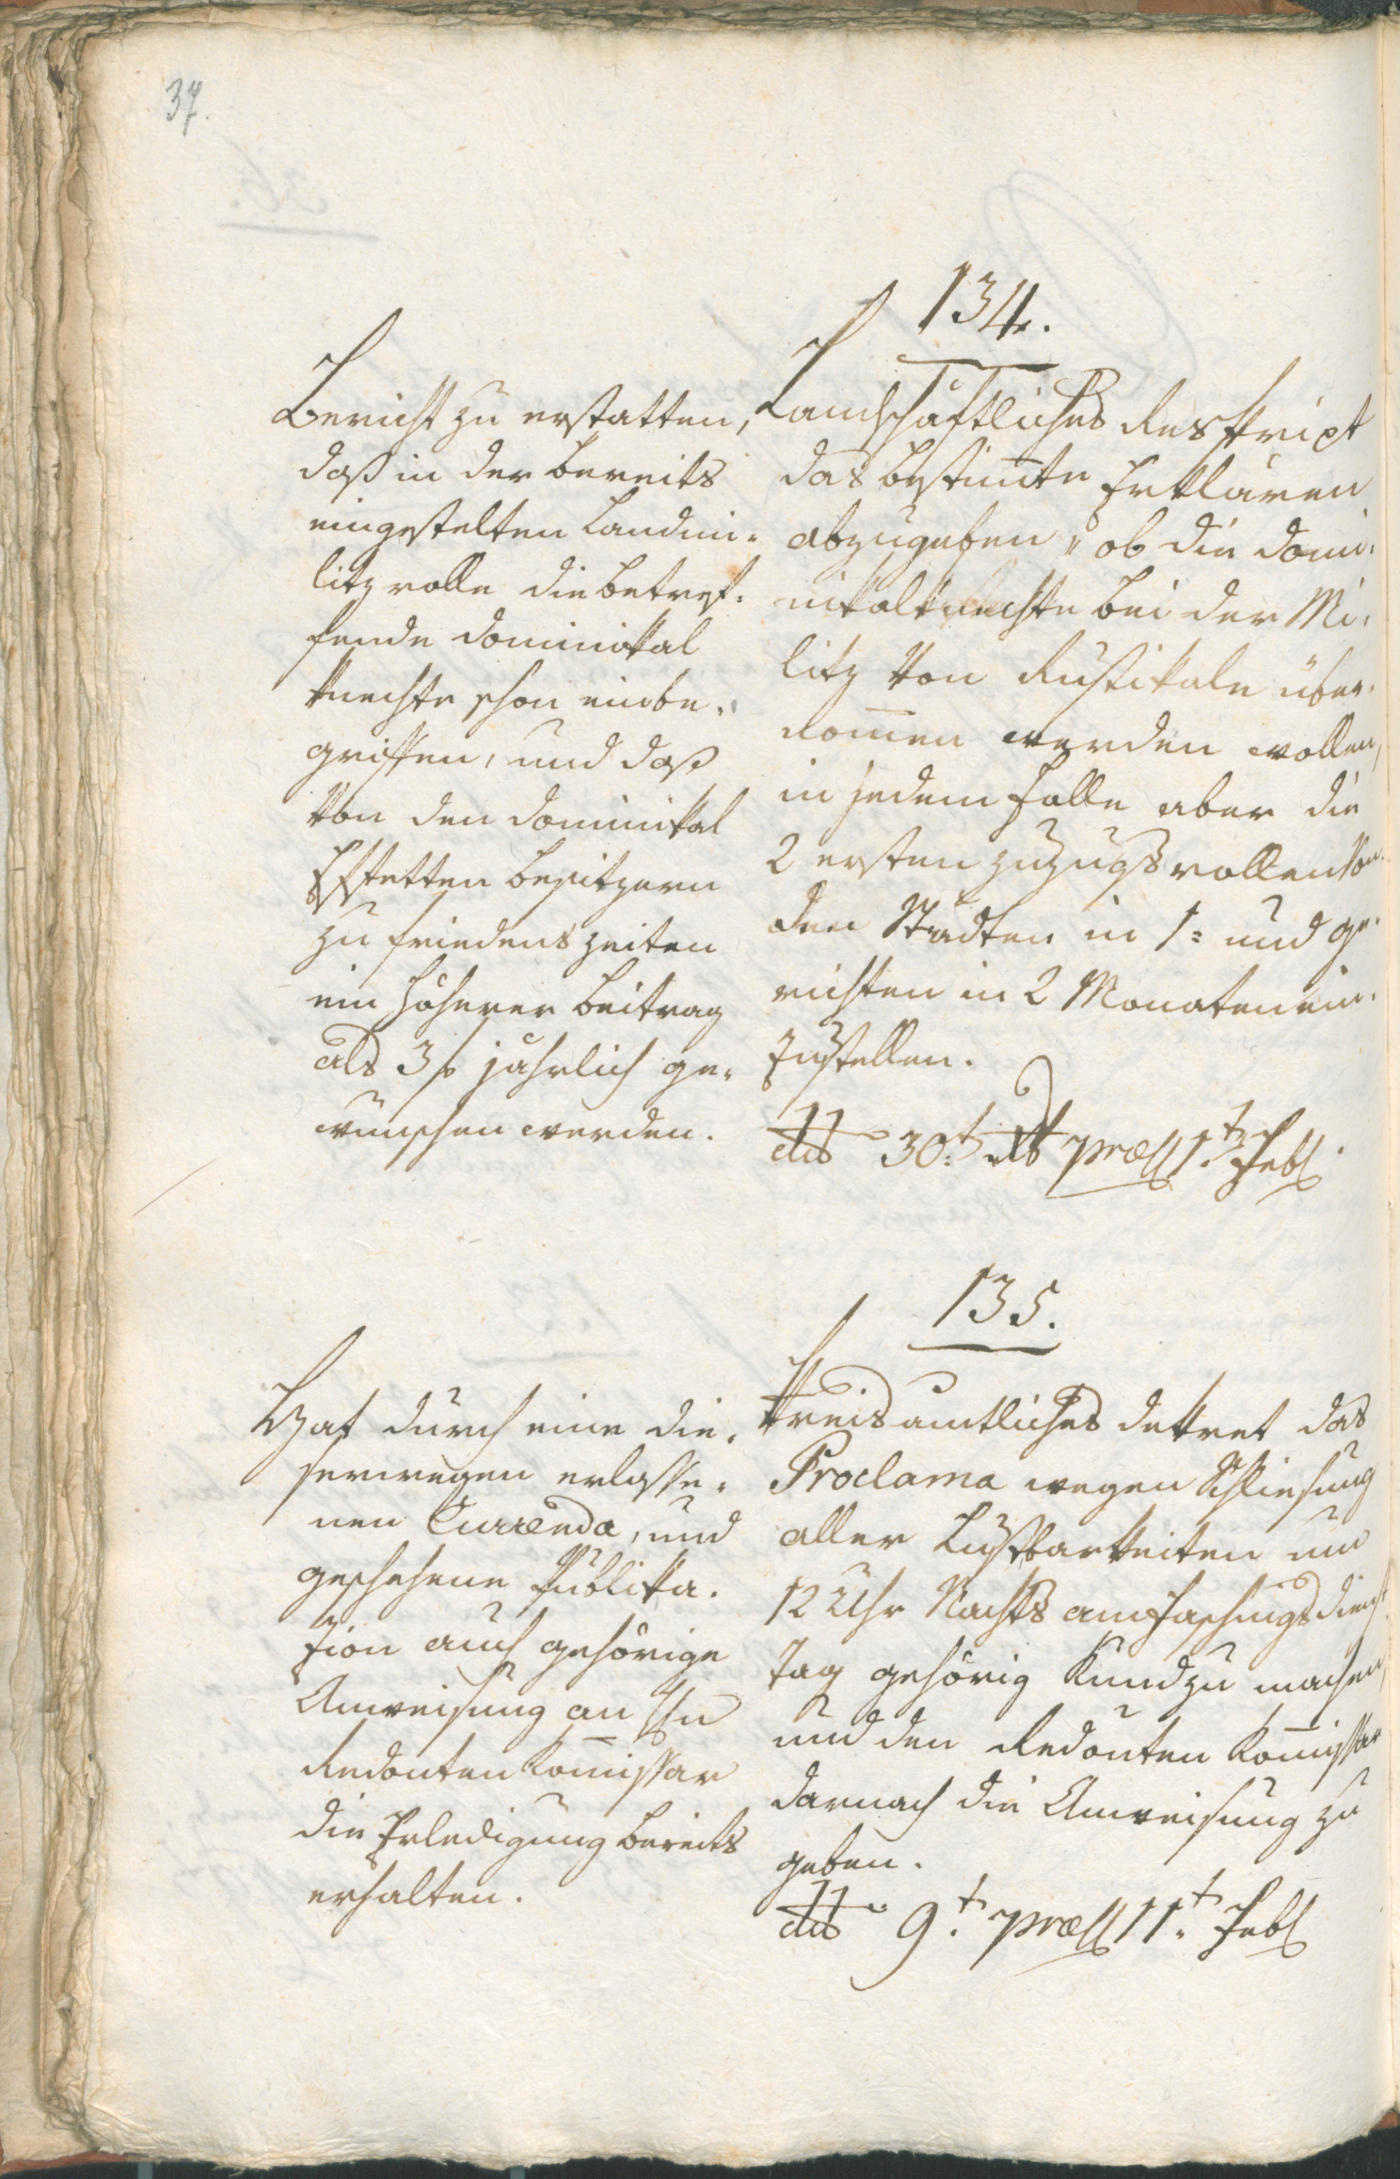 37.
134.
Bericht zu erstatten,
daß in der bereits
eingestelten Landmi-
litz rolle die betref-
fende Dominikal
knechte schon einbe-
griffen, und daß
von den Dominikal
Effekten besitzern
zu friedenszeiten
ein höherer beitrag
als 3 f jährlich ge-
wunschen werden.
Landschäftliches Reskript
das bestim̅te Erklären
abzugeben, ob die Domi-
nikalknechte bei der Mi-
litz von Rustikale über-
nom̅en werden wollen,
in jedem falle aber die
2 ersten zuzugsrollen von
den Städten in 1= und ge-
richten in 2 Monaten ein-
zustellen.
dto 30t praes 1t Feb
135.
Hat durch eine die-
serwegen erlasse-
nen Currenda, und
geschehene Publika-
zion auch gehörige
Anweisung an Hn
Redouten Kom̅issar
die Erledigung bereits
erhalten.
Kreisamtliches dekret das
Proclama wegen Schliesung
aller Lustbarkeiten um
12 Uhr Nachts am faschings dienst
tag gehörig Kundzu machen,
und den Redouten Kom̅issar
darnach die Anweisung zu
geben.
dto 9t praes 11t Feb